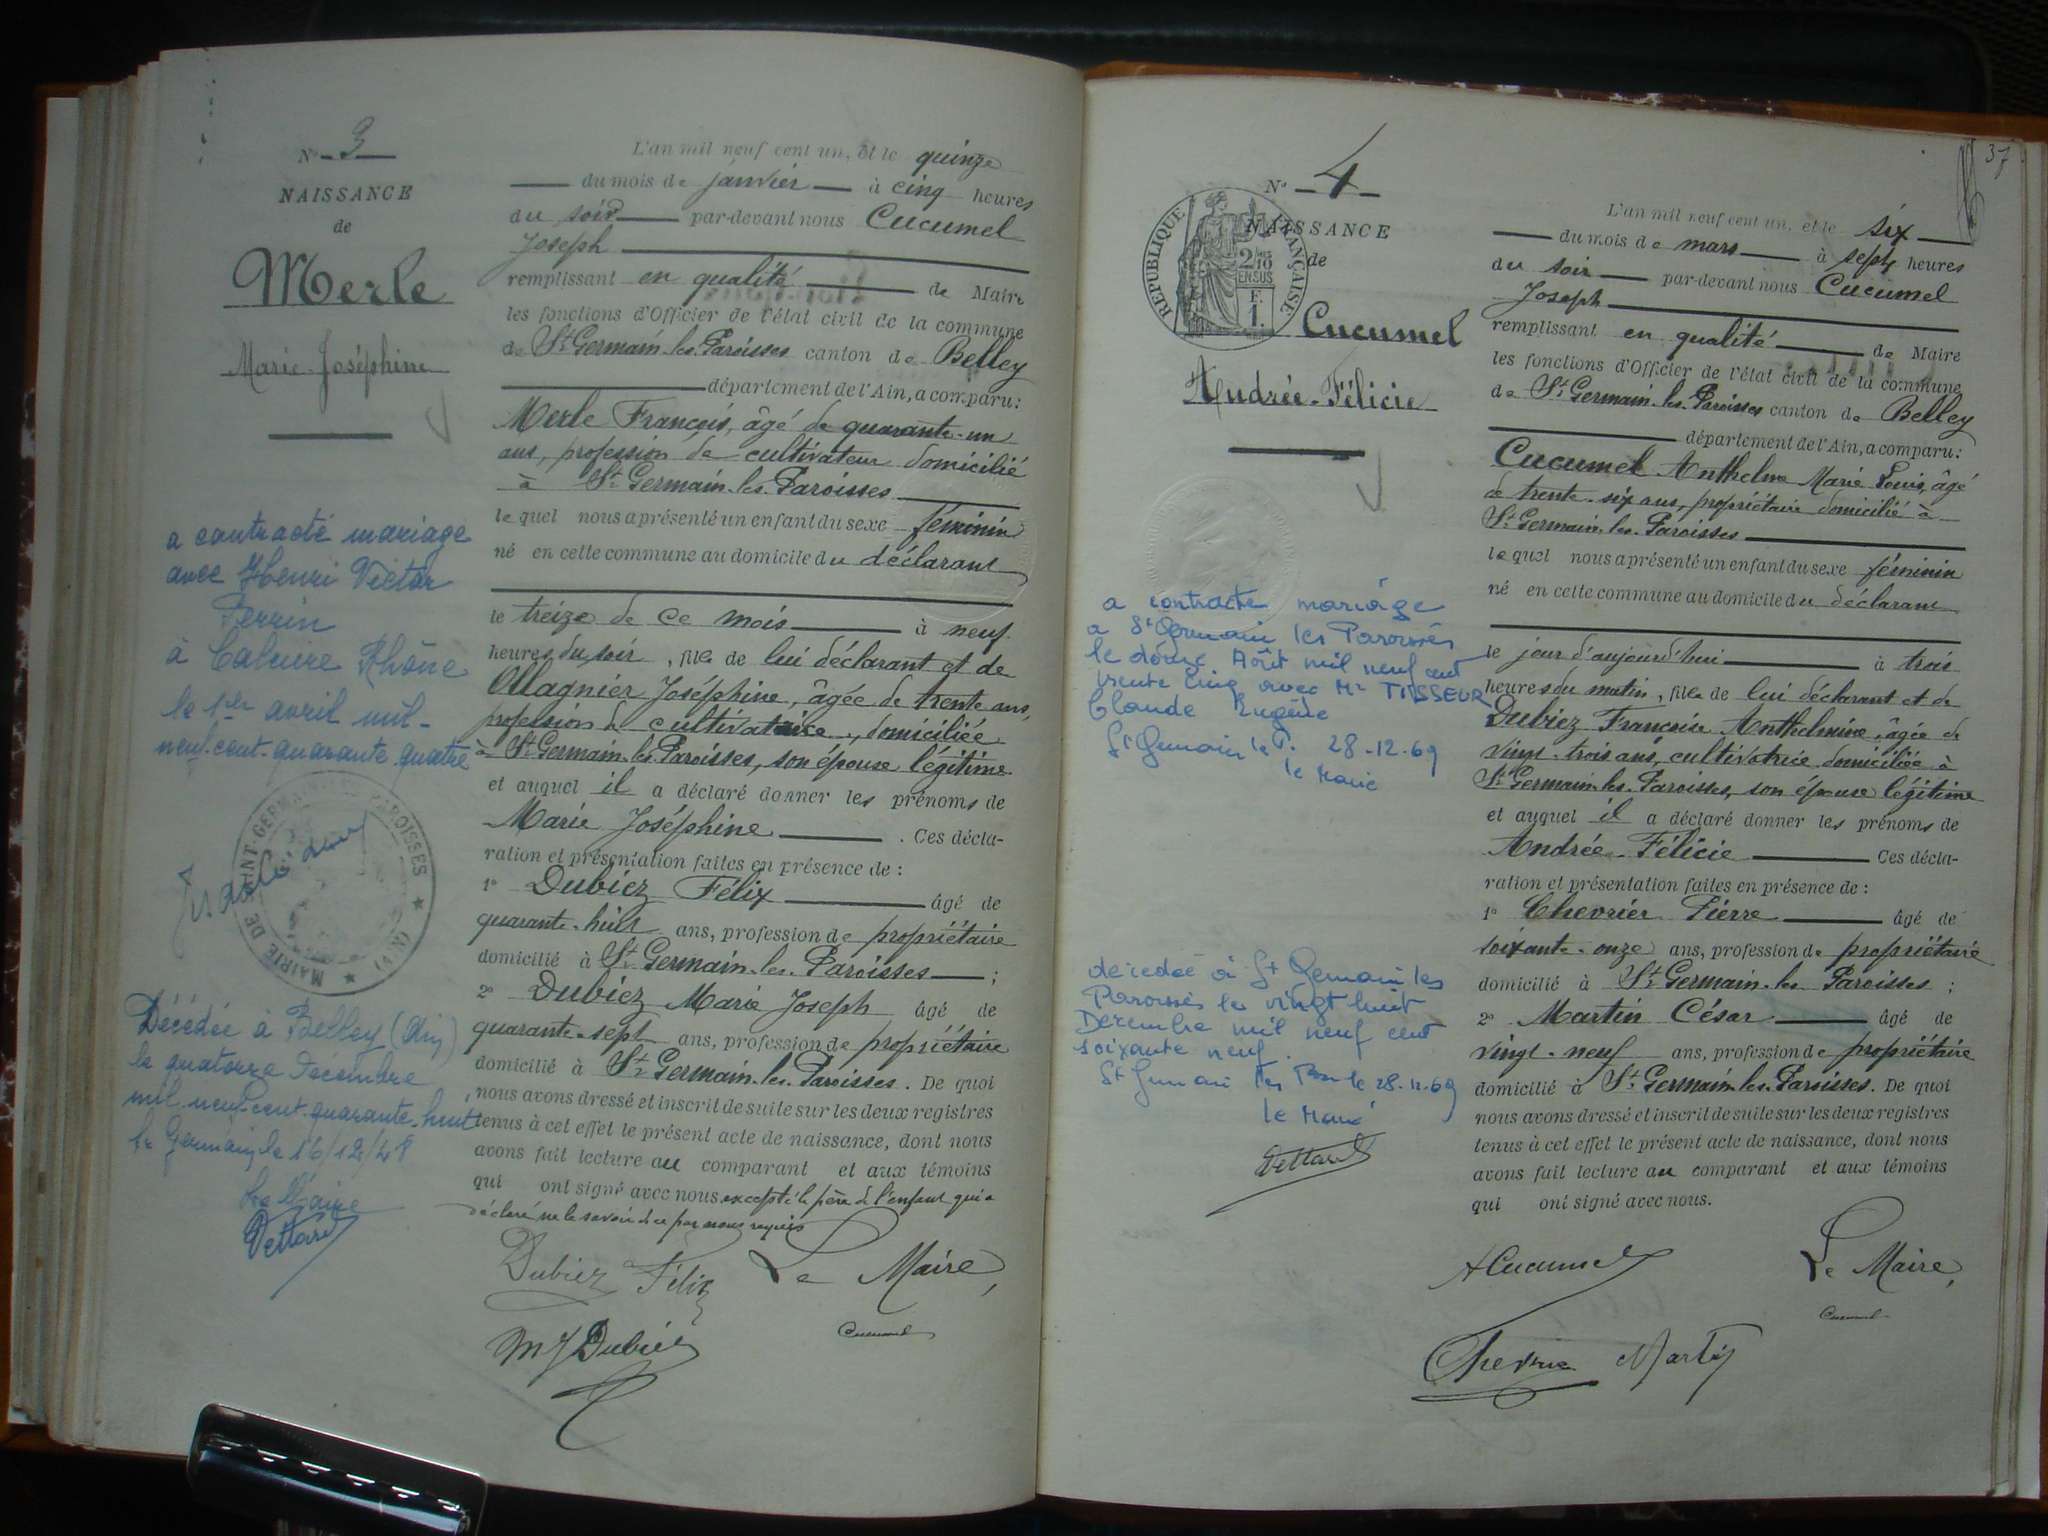 N° 3
NAISSANCE
de
Merle
Marie-Joséphine
a contracté mariage
avec Henri Victor
Perrin
à Caluire Rhône
le 1er avril mil-
neuf-cent-quarante quatre
MAIRIE DE SAINT-GERMAIN-LES-PAROISSES ★ (AIN) ★
Décédée à Belley (Ain)
le quatorze Décembre
mil-neuf-cent-quarante-huit
St Germain, le 16/12/48
Le Maire
L'an mil neuf cent un, et le quinze
du mois de janvier à cinq heures
du soir par-devant nous Cucumel
Joseph
remplissant en qualité de Maire
les fonctions d'Officier de l'état civil de la commune
de St Germain-les-Paroisses canton de Belley
département de l'Ain, a comparu:
Merle François, âgé de quarante-un
ans, profession de cultivateur domicilié
à St Germain-les-Paroisses
lequel nous a présenté un enfant du sexe féminin
né en cette commune au domicile du déclarant
le treize de ce mois à neuf
heures du soir, fille de lui déclarant et de
Ollagnier Joséphine, âgée de trente ans,
profession de cultivatrice, domiciliée
à St Germain-les-Paroisses, son épouse légitime
et auquel il a déclaré donner les prénoms de
Marie Joséphine. Ces décla-
ration et présentation faites en présence de:
1° Dubiez Félix âgé de
quarante-huit ans, profession de propriétaire
domicilié à St Germain-les-Paroisses;
2° Dubiez Marie Joseph âgé de
quarante-sept ans, profession de propriétaire
domicilié à St Germain-les-Paroisses. De quoi
nous avons dressé et inscrit de suite sur les deux registres
tenus à cet effet le présent acte de naissance, dont nous
avons fait lecture au comparant et aux témoins
qui ont signé avec nous excepté le père de l'enfant qui a
déclaré ne le savoir de ce par nous requis
Dubiez Félix Le Maire,
MJ Dubiez Cucumel
37
N° 4
NAISSANCE
de
RÉPUBLIQUE FRANÇAISE
2/10
EN SUS
F.
1.
Cucumel
Andrée-Félicie
a contracté mariage
a St Germain les Paroisses
le douze Août mil neuf cent
trente cinq avec Mr TISSEUR
Claude Eugène
St Germain le P. 28-12-69
le Maire
décédée à St Germain les
Paroisses le vingt huit
Décembre mil neuf cent
soixante neuf.
St Germain les Par le 28-12-69
le Maire
L'an mil neuf cent un, et le six
du mois de mars à sept heures
du soir par-devant nous Cucumel
Joseph
remplissant en qualité de Maire
les fonctions d'Officier de l'état civil de la commune
de St Germain-les-Paroisses canton de Belley
département de l'Ain, a comparu:
Cucumel Anthelme Marie Louis, âgé
de trente-six ans, propriétaire domicilié à
St Germain-les-Paroisses
lequel nous a présenté un enfant du sexe féminin
né en cette commune au domicile du déclarant
le jour d'aujourd'hui à trois
heures du matin, fille de lui déclarant et de
Dubiez Françoise Anthelmine, âgée de
vingt-trois ans, cultivatrice domiciliée à
St Germain-les-Paroisses, son épouse légitime
et auquel il a déclaré donner les prénoms de
Andrée-Félicie Ces décla-
ration et présentation faites en présence de:
1° Chevrier Pierre âgé de
soixante-onze ans, profession de propriétaire
domicilié à St Germain-les-Paroisses;
2° Martin César âgé de
vingt-neuf ans, profession de propriétaire
domicilié à St Germain-les-Paroisses. De quoi
nous avons dressé et inscrit de suite sur les deux registres
tenus à cet effet le présent acte de naissance, dont nous
avons fait lecture au comparant et aux témoins
qui ont signé avec nous.
A Cucumel Le Maire,
Cucumel
Chevrier Martin